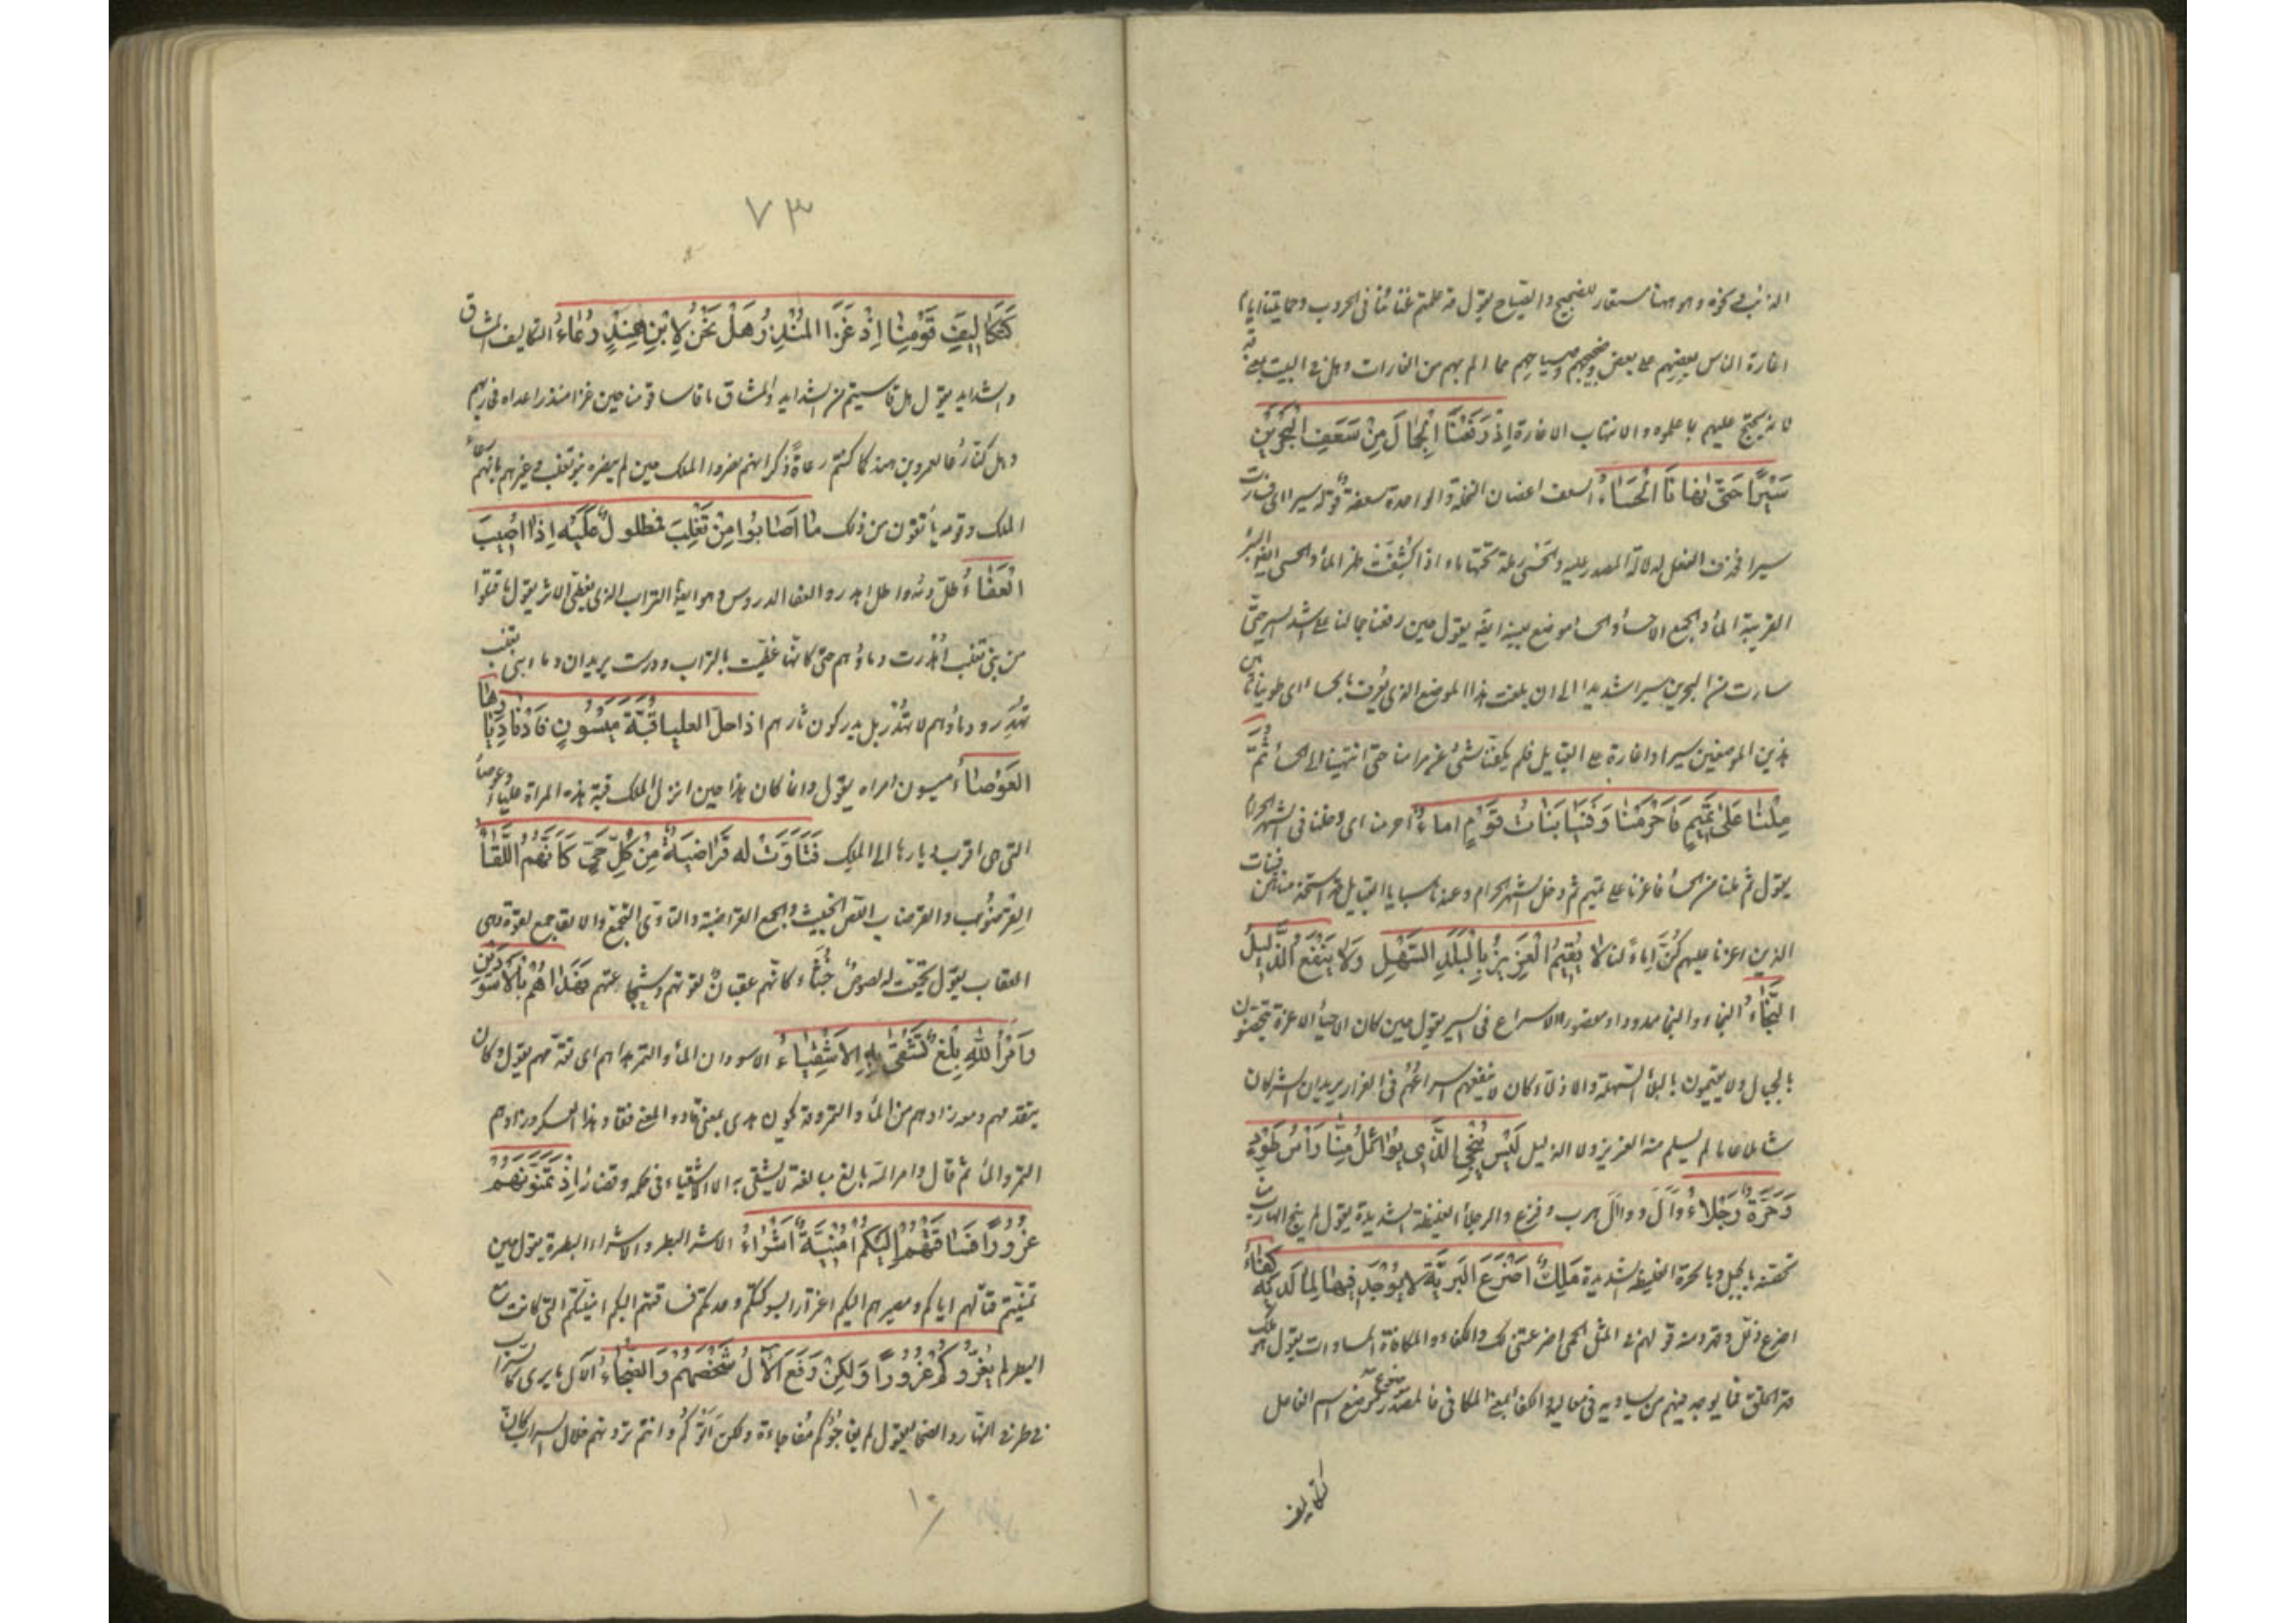 الذئب في كونه وهو ههنا مستعار للضجيج والصياح يقول قد علمتم غناءنا في الحروب وحمايتنا ايام
اغارة الناس بعضهم على بعض وضجيجهم وصياحهم مما الم بهم من الغارات وهل في البيت بمعنى قد
لانه يحتج عليهم بما علموه والانتهاب الاغارة اِذْ رَفَعْنَا الْجِمَالَ مِنْ سَعَفِ الْبَحْرَيْنِ
سَيْرًا حَتّٰى نَهَانَا الْحِسَاءُ السعف اغصان النخلة والواحدة سعفة قوله سيرا اى فسارت
سيرا فحذف الفعل لدلالة المصدر عليه والحسى رملة تحتها ماء اذا كشفت ظهر الماء والحسى ايضا البئر
القريبة الماء والجمع الاحساء والحساء موضع بعينه ايضا يقول حين رفعنا جمالنا على اشد السير حتى
سارت من البحرين سيرا شديدا الى ان بلغت هذا الموضع الذى يعرف بالحساء اى طوينا ما بين
هذين الموضعين سيرا واغارة على القبايل فلم يكفنا شئ عن مرامنا حتى انتهينا الى الحساء ثُمَّ
مِلْنَا عَلٰى تَمِيْمٍ فَاَحْرَمْنَا وَفِيْنَا بَنَاتُ قَوْمٍ اِمَاءُ احرمنا اى دخلنا فى الشهر الحرام
يقول ثم ملنا من الحساء فاغرنا على تميم ثم دخل الشهر الحرام وعندنا سبايا القبايل قد استخدمناهن فبنات
الذين اغرنا عليهم كن اماء لنا لَا يُقِيْمُ الْعَزِيْزُ بِالْبَلَدِ السَّهْلِ وَلَا يَنْفَعُ الذَّلِيْلَ
النَّجَاءُ النجاء والنجا ممدودا ومقصورا الاسراع فى السير يقول حين كان الاحياء الاعزة يتحصنون
بالجبال ولا يقيمون بالبلاد السهلة والاذلاء كان لا ينفعهم اسراعهم فى الفرار يريد ان الشر كان
شاملا عاما لم يسلم منه العزيز ولا الذليل لَيْسَ يُنْجِى الَّذِى يُوَائِلُ مِنَّا رَأْسُ طَوْدٍ
وَحَرَّةٌ رَجْلَاءُ وآل و وائل هرب وفزع والرجلاء الغليظة الشديدة يقول لم ينج الهارب منا
تحصنه بالجبل وبالحرة الغليظة الشديدة مَلِكٌ اَضْرَعَ الْبَرِيَّةَ لَا يُوْجَدُ فِيْهَا لِمَا لَدَيْهِ كِفَاءُ
اضرع ذلل وقهر ومنه قولهم فى المثل الحمى اضرعتنى لك والكفاء والمكافاة المساوات يقول هو ملك
قهر الخلق فما يوجد فيهم من يساويه فى معاليه والكفاء بمعنى المكافى فالمصدر موضوع موضع اسم الفاعل
كتكاليف
٧٣
كَتَكَالِيْفِ قَوْمِنَا اِذْ غَزَا الْمُنْذِرُ هَلْ نَحْنُ لِابْنِ هِنْدٍ رُعَاءُ التكاليف المشاق
والشدايد يقول هل قاسيتم من الشدايد والمشاق ما قاسا قومنا حين غزا منذر اعداه فحاربهم
وهل كنا رعاء لعمرو بن هند كما كنتم رعاة ذكر انهم نصروا الملك حين لم ينصره بنو تغلب وعيرهم بانهم رعاء
الملك وقومه يأنفون من ذلك مَا اَصَابُوا مِنْ تَغْلِبِىٍّ فَمَطْلُولٌ عَلَيْهِ اِذَا اُصِيْبَ
الْعَفَاءُ طل دمه واطل اهدر والعفاء الدروس وهو ايضا التراب الذى يغطى الاثر يقول ما قتلوا
من بنى تغلب اهدرت دماؤهم حتى كانها غطيت بالتراب ودرست يريد ان دماء بنى تغلب
تهدر ودماؤهم لا تهدر بل يدركون ثارهم اِذْ اَحَلَّ الْعَلْيَاءَ قُبَّةَ مَيْسُوْنٍ فَاَدْنٰى دِيَارِهَا
الْعَوْصَاءُ ميسون امراه يقول وانما كان هذا حين انزل الملك قبة هذه المراة علياء وعوصاء
التى هى اقرب ديارها الى الملك فَتَأَوَّتْ لَهُ قَرَاضِبَةٌ مِنْ كُلِّ حَىٍّ كَاَنَّهُمْ اَلْقَاءُ
القرضوب والقرضاب اللص الخبيث والجمع القراضبة والتاوى التجمع والالقاء جمع لقوة وهى
العقاب يقول تجمعت له لصوص خبثاء كانهم عقبان لقوتهم وشجاعتهم فَهَدَاهُمْ بِالْاَسْوَدَيْنِ
وَاَمْرُ اللهِ بِلْغٌ تَشْقٰى بِهِ الْاَشْقِيَاءُ الاسودان الماء والتمر هداهم اى تقدمهم يقول وكان
يتقدمهم ومعه زادهم من الماء والتمر وقد يكون هدى بمعنى قاد والمعنى فقاد هذا العسكر وزادهم
التمر والماء ثم قال وامر الله بالغ مبالغه لا يشقى به الا الاشقياء فى حكمه وقضائه اِذْ تَمَنَّوْنَهُمْ
غُرُوْرًا فَسَاقَتْهُمْ اِلَيْكُمْ اُمْنِيَّةٌ اَشْرَاءُ الاشر البطر والاشراء البطرة يقول حين
تمنيتم قتالهم اياكم ومصيرهم اليكم اغترارا بشوكتكم وعدتكم فساقتهم اليكم امنيتكم التى كانت مع
البطر لَمْ يَغُرُّوْكُمْ غُرُوْرًا وَلٰكِنْ رَفَعَ الْآلُ شَخْصَهُمْ وَالضَّحَاءُ الآل ما يرى كالسراب
فى طرفى النهار والضحاء يقول لم يفاجؤكم مفاجاءة ولكن اتوكم وانتم ترونهم خلال السراب كان